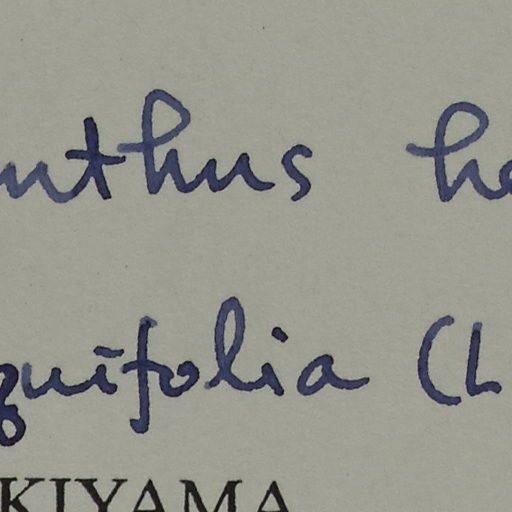 nthus he
quifolia (L
KIYAMA